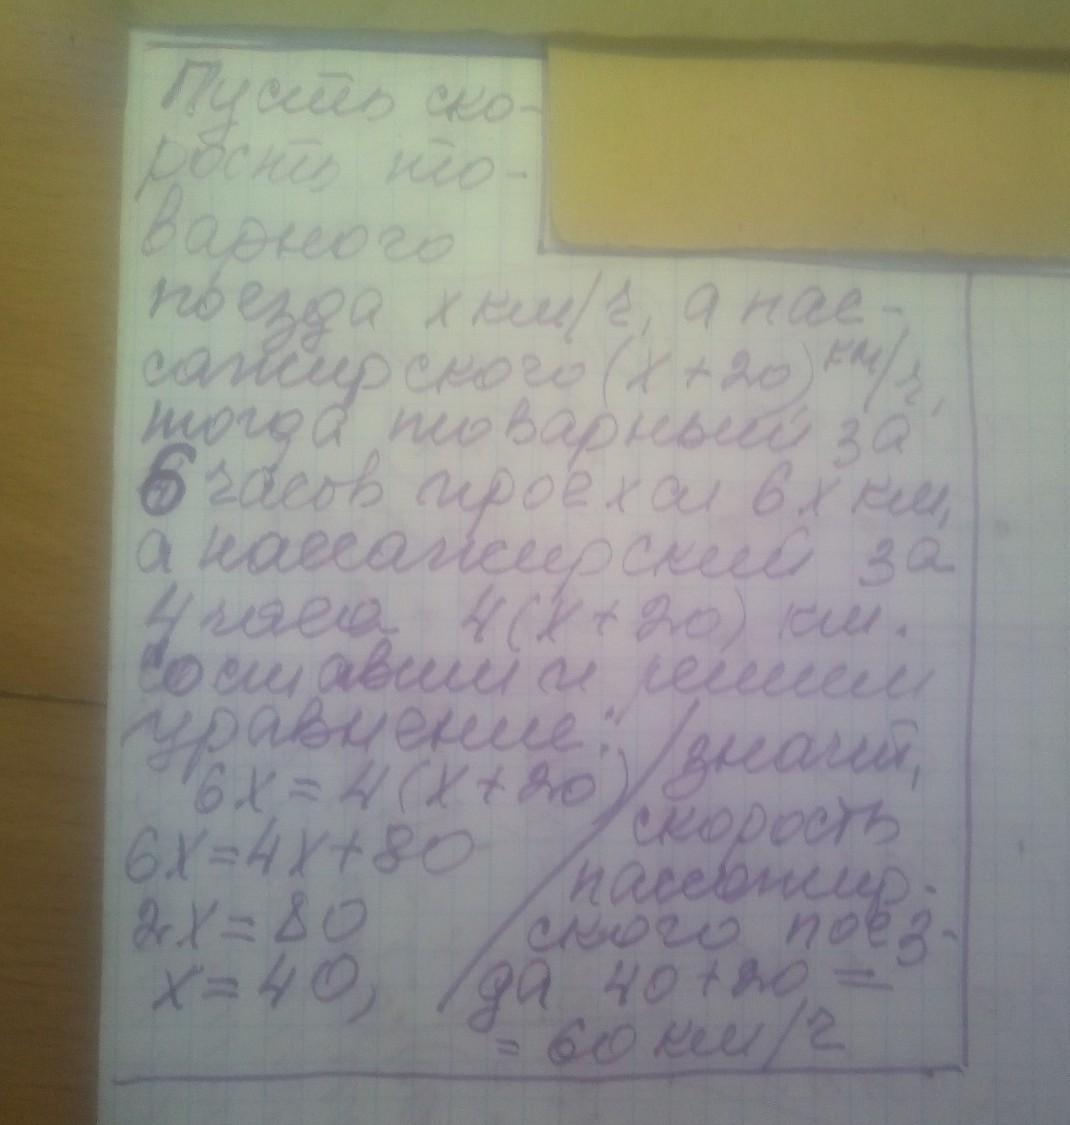 Пусть ско-
рость то-
варного
поезда x км/ч, а пас-
сажирского (x+20) км/ч,
тогда товарный за
6 часов проехал 6x км,
а пассажирский за
4 часа 4(x+20) км.
Составим и решим
уравнение:
6x=4(x+20)
6x=4x+80
2x=80
x=40,
значит,
скорость
пассажир-
ского поез-
да 40+20=
=60 км/ч